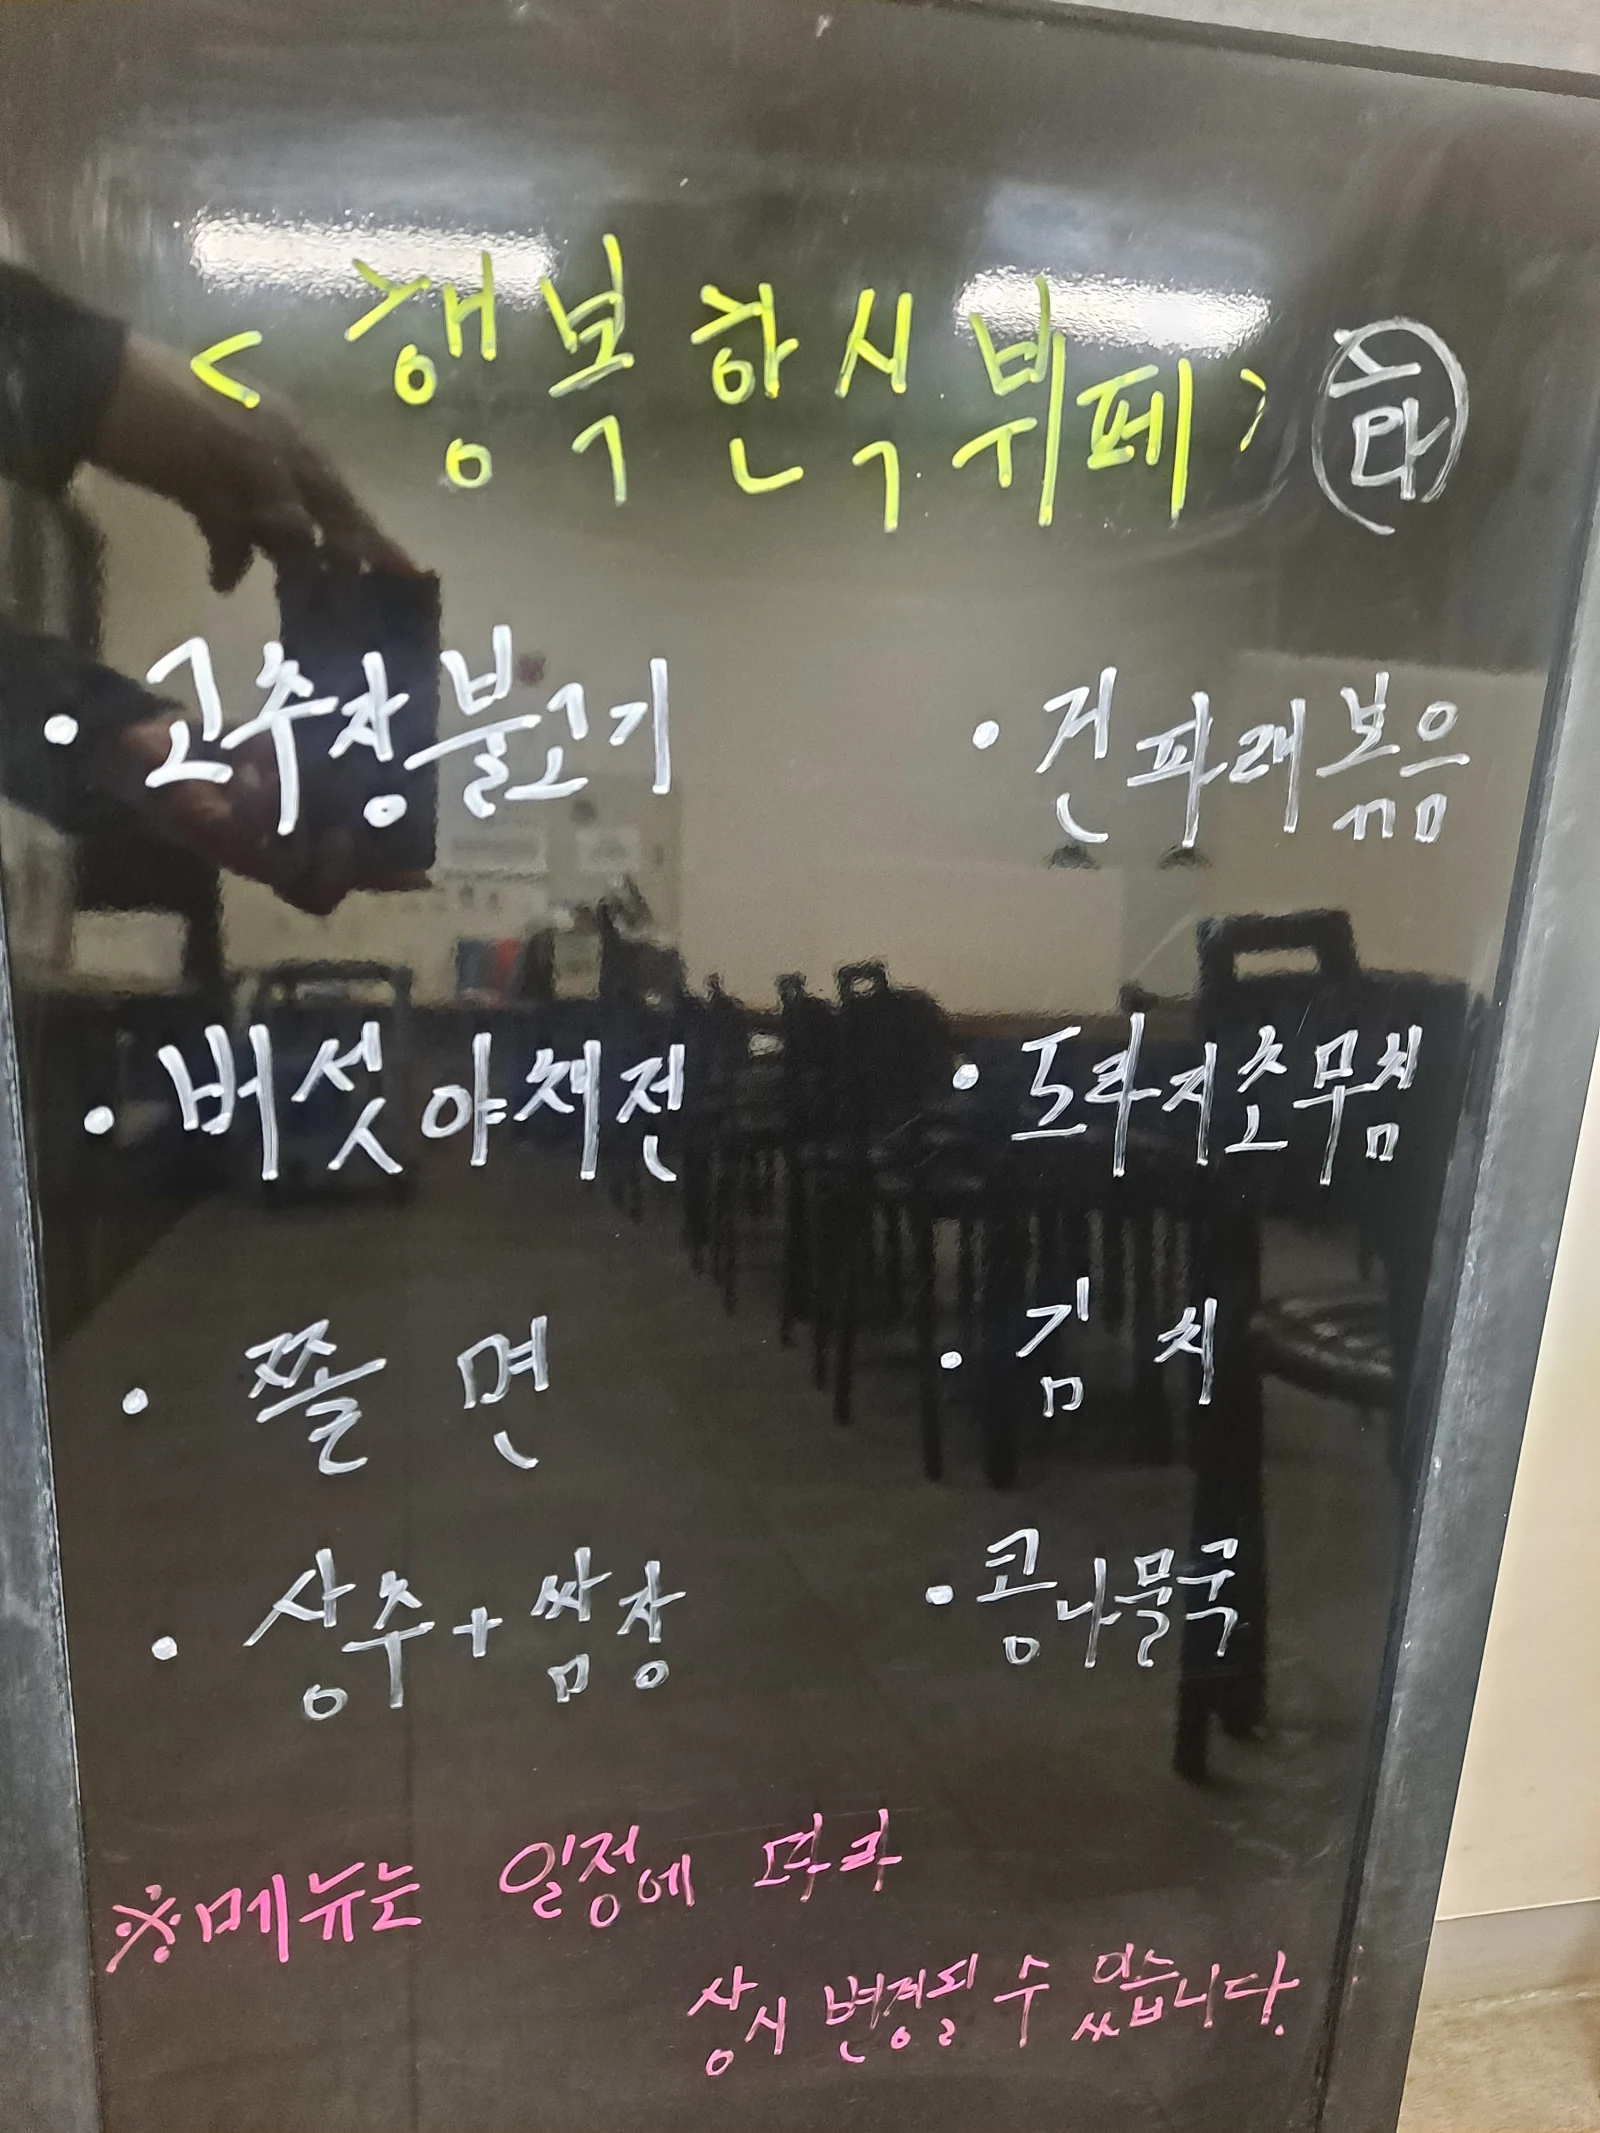 <행복한식뷔페> 화
• 고추장불고기
• 건파래볶음
• 버섯야채전
• 도라지초무침
• 쫄면
• 김치
• 상추+쌈장
• 콩나물국
※메뉴는 일정에 따라
상시 변경될 수 있습니다.